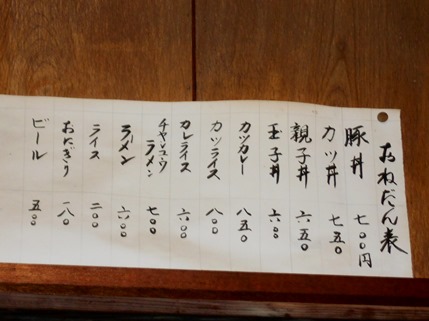 おねだん表
豚丼 七〇〇円
カツ丼 七五〇
親子丼 六五〇
玉子丼 六〇〇
カツカレー 八五〇
カツライス 八〇〇
カレライス 六〇〇
チャシュウラメン 七〇〇
ラーメン 六〇〇
ライス 二〇〇
おにぎり 一八〇
ビール 五〇〇